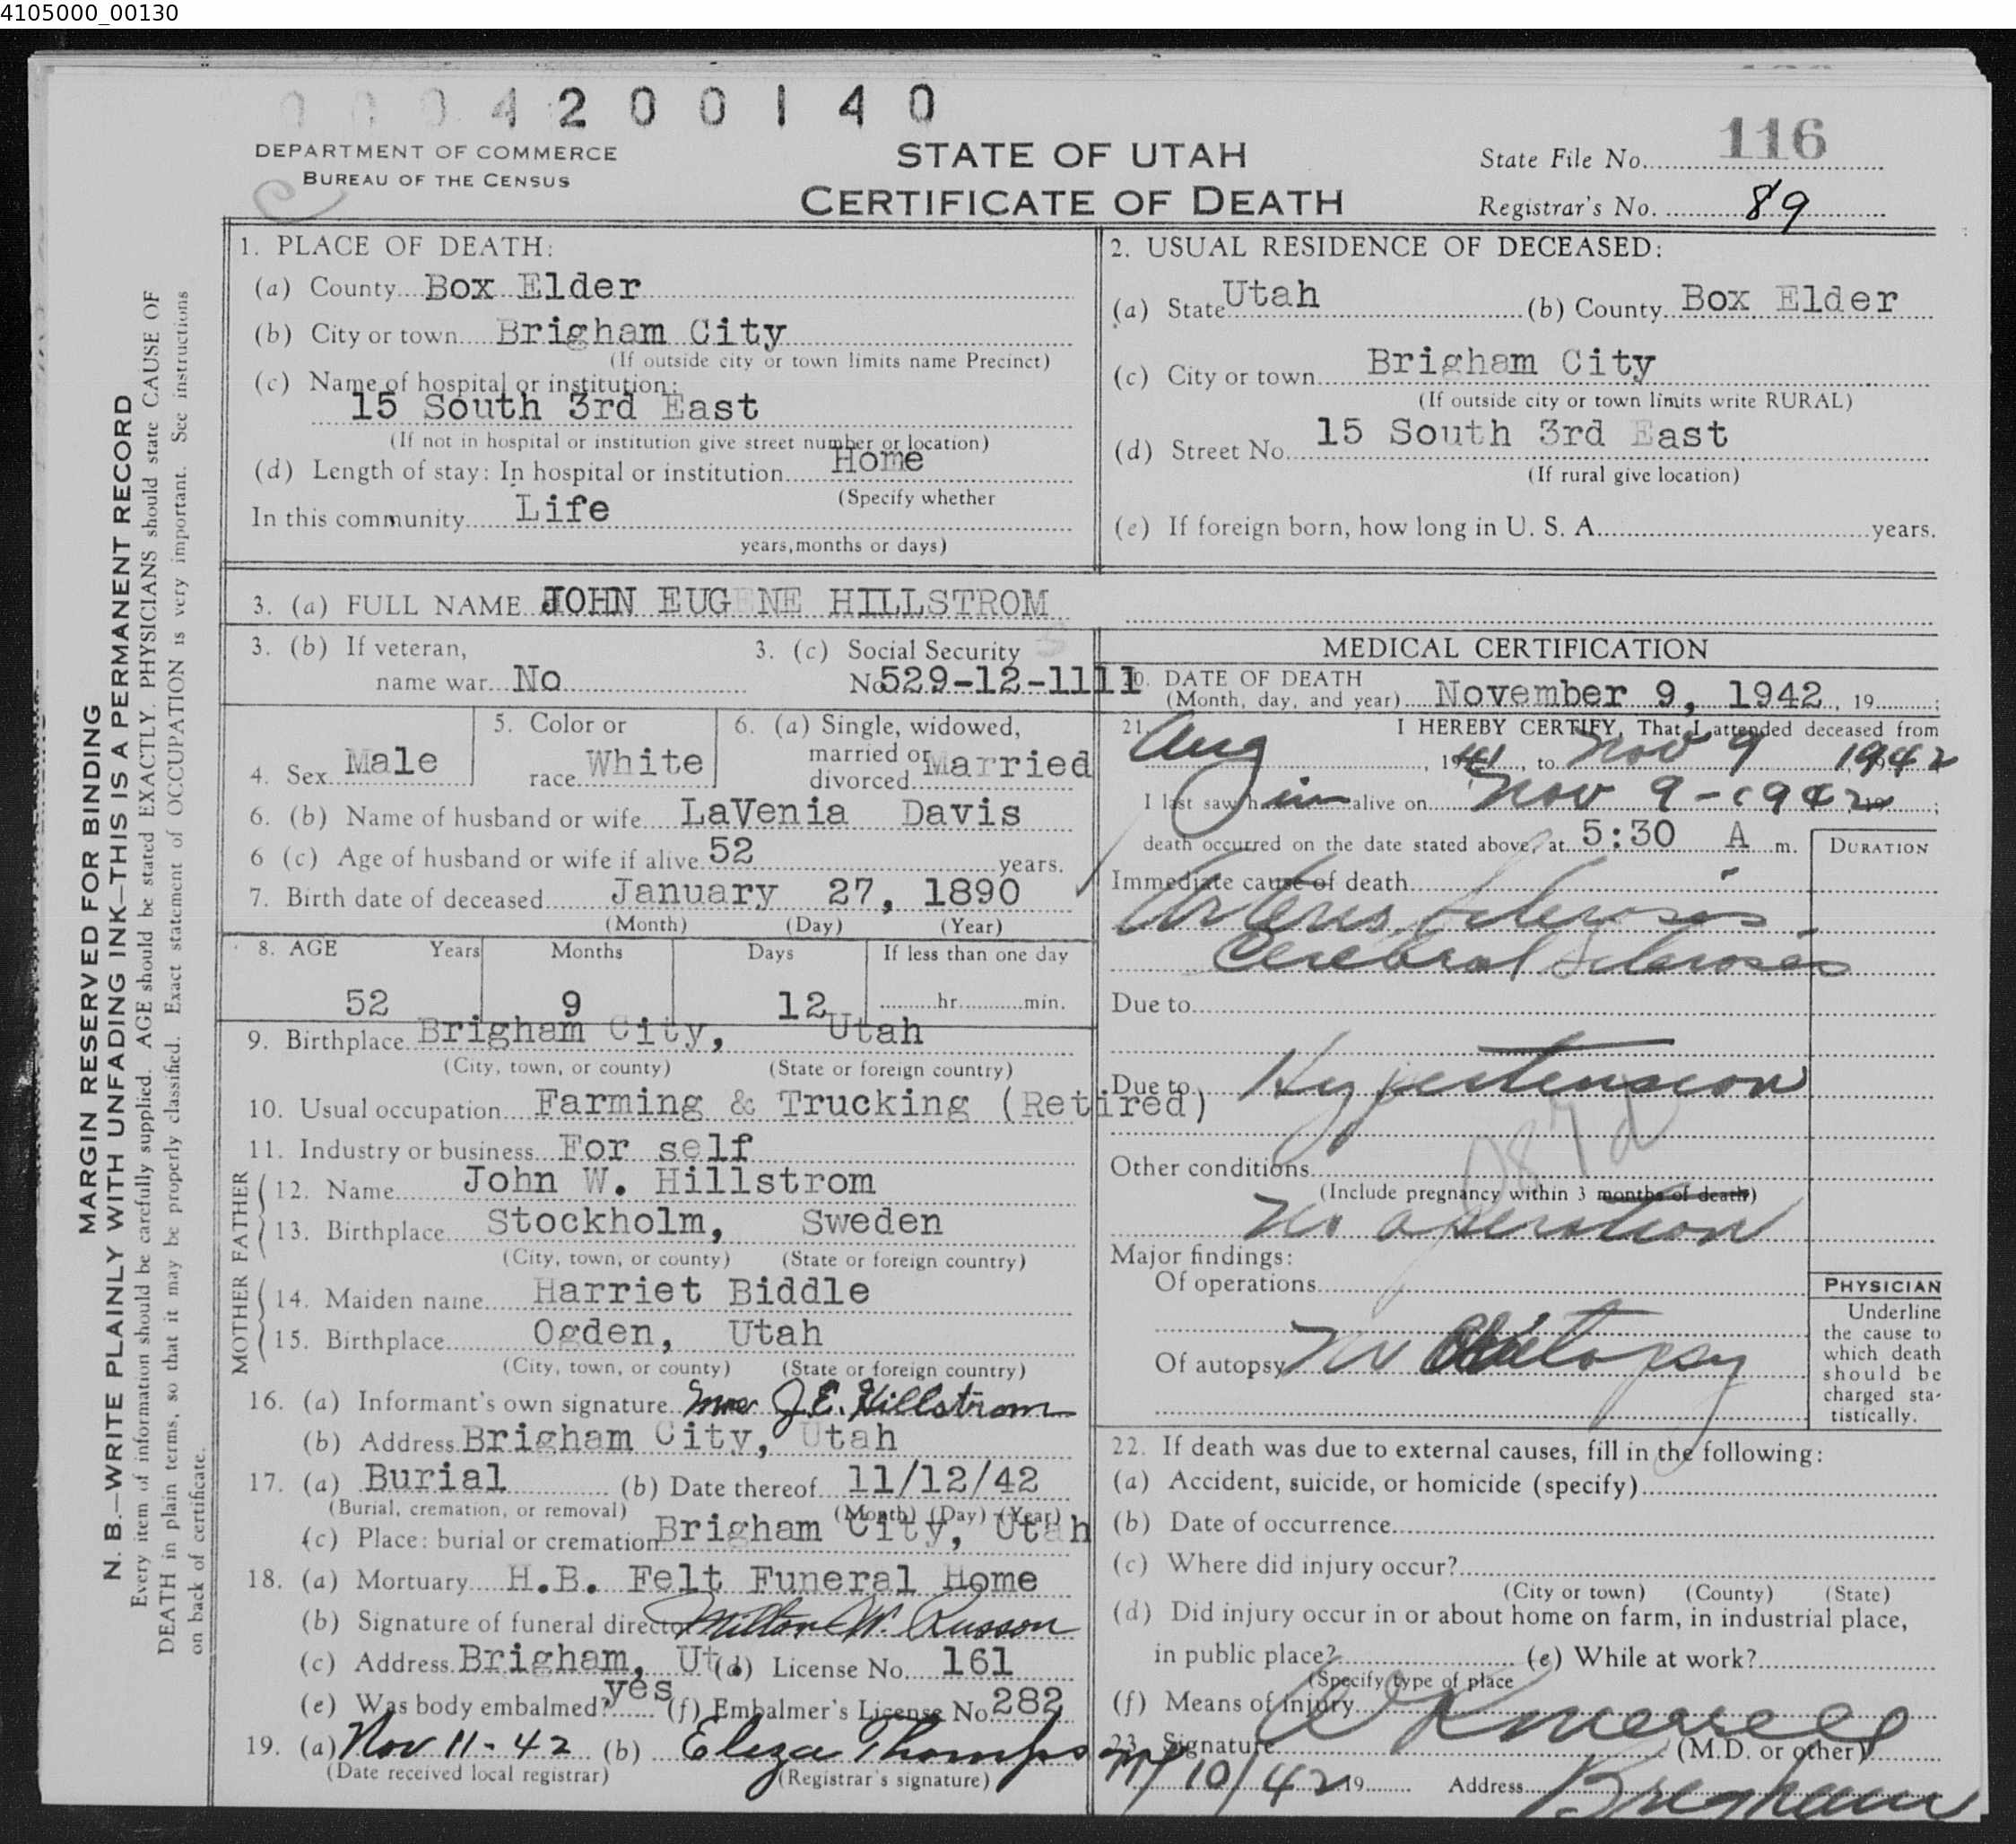 4105000_00130
0004200140
DEPARTMENT OF COMMERCE
BUREAU OF THE CENSUS
STATE OF UTAH
CERTIFICATE OF DEATH
State File No. 116
Registrar's No. 89
MARGIN RESERVED FOR BINDING
N. B.—WRITE PLAINLY WITH UNFADING INK—THIS IS A PERMANENT RECORD
Every item of information should be carefully supplied. AGE should be stated EXACTLY. PHYSICIANS should state CAUSE OF
DEATH in plain terms, so that it may be properly classified. Exact statement of OCCUPATION is very important. See instructions
on back of certificate.
1. PLACE OF DEATH:
(a) County Box Elder
(b) City or town Brigham City
(If outside city or town limits name Precinct)
(c) Name of hospital or institution:
15 South 3rd East
(If not in hospital or institution give street number or location)
(d) Length of stay: In hospital or institution Home
(Specify whether
In this community Life
years, months or days)
2. USUAL RESIDENCE OF DECEASED:
(a) State Utah (b) County Box Elder
(c) City or town Brigham City
(If outside city or town limits write RURAL)
(d) Street No. 15 South 3rd East
(If rural give location)
(e) If foreign born, how long in U. S. A. years.
3. (a) FULL NAME JOHN EUGENE HILLSTROM
3. (b) If veteran,
name war No
3. (c) Social Security
No. 529-12-1111
4. Sex Male
5. Color or
race White
6. (a) Single, widowed,
married or
divorced Married
6. (b) Name of husband or wife LaVenia Davis
6 (c) Age of husband or wife if alive 52 years.
7. Birth date of deceased January 27, 1890
(Month) (Day) (Year)
8. AGE Years Months Days If less than one day
52 9 12 hr. min.
9. Birthplace Brigham City, Utah
(City, town, or county) (State or foreign country)
10. Usual occupation Farming & Trucking (Retired)
11. Industry or business For self
FATHER
12. Name John W. Hillstrom
13. Birthplace Stockholm, Sweden
(City, town, or county) (State or foreign country)
MOTHER
14. Maiden name Harriet Biddle
15. Birthplace Ogden, Utah
(City, town, or county) (State or foreign country)
16. (a) Informant's own signature Mrs J.E. Hillstrom
(b) Address Brigham City, Utah
17. (a) Burial (b) Date thereof 11/12/42
(Burial, cremation, or removal) (Month) (Day) (Year)
(c) Place: burial or cremation Brigham City, Utah
18. (a) Mortuary H.B. Felt Funeral Home
(b) Signature of funeral director Milton W. Russon
(c) Address Brigham, Ut. (d) License No. 161
(e) Was body embalmed? yes (f) Embalmer's License No. 282
19. (a) Nov 11-42 (b) Eliza Thomps
(Date received local registrar) (Registrar's signature)
MEDICAL CERTIFICATION
20. DATE OF DEATH
(Month, day, and year) November 9, 1942, 19 ;
21. I HEREBY CERTIFY, That I attended deceased from
Aug , 1941, to Nov 9 1942
I last saw him alive on Nov 9-1942 ;
death occurred on the date stated above, at 5:30 A m.
DURATION
Immediate cause of death
Arterio Sclerosis
Cerebral Sclerosis
Due to
Due to Hypertension
Other conditions
(Include pregnancy within 3 months of death)
No operation
Major findings:
Of operations
Of autopsy No Autopsy
PHYSICIAN
Underline
the cause to
which death
should be
charged sta-
tistically.
22. If death was due to external causes, fill in the following:
(a) Accident, suicide, or homicide (specify)
(b) Date of occurrence
(c) Where did injury occur?
(City or town) (County) (State)
(d) Did injury occur in or about home on farm, in industrial place,
in public place? (e) While at work?
(Specify type of place
(f) Means of injury
23. Signature (M.D. or other)
11/10/42 19 Address Brigham